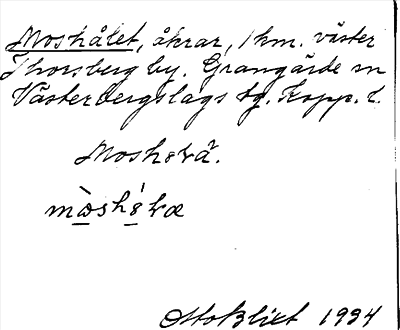 Moshålet, åkrar, 1 km. väster
Thorsberg by. Grangärde sn
Västerbergslags tg. Kopp. l.
Otto Blixt 1934